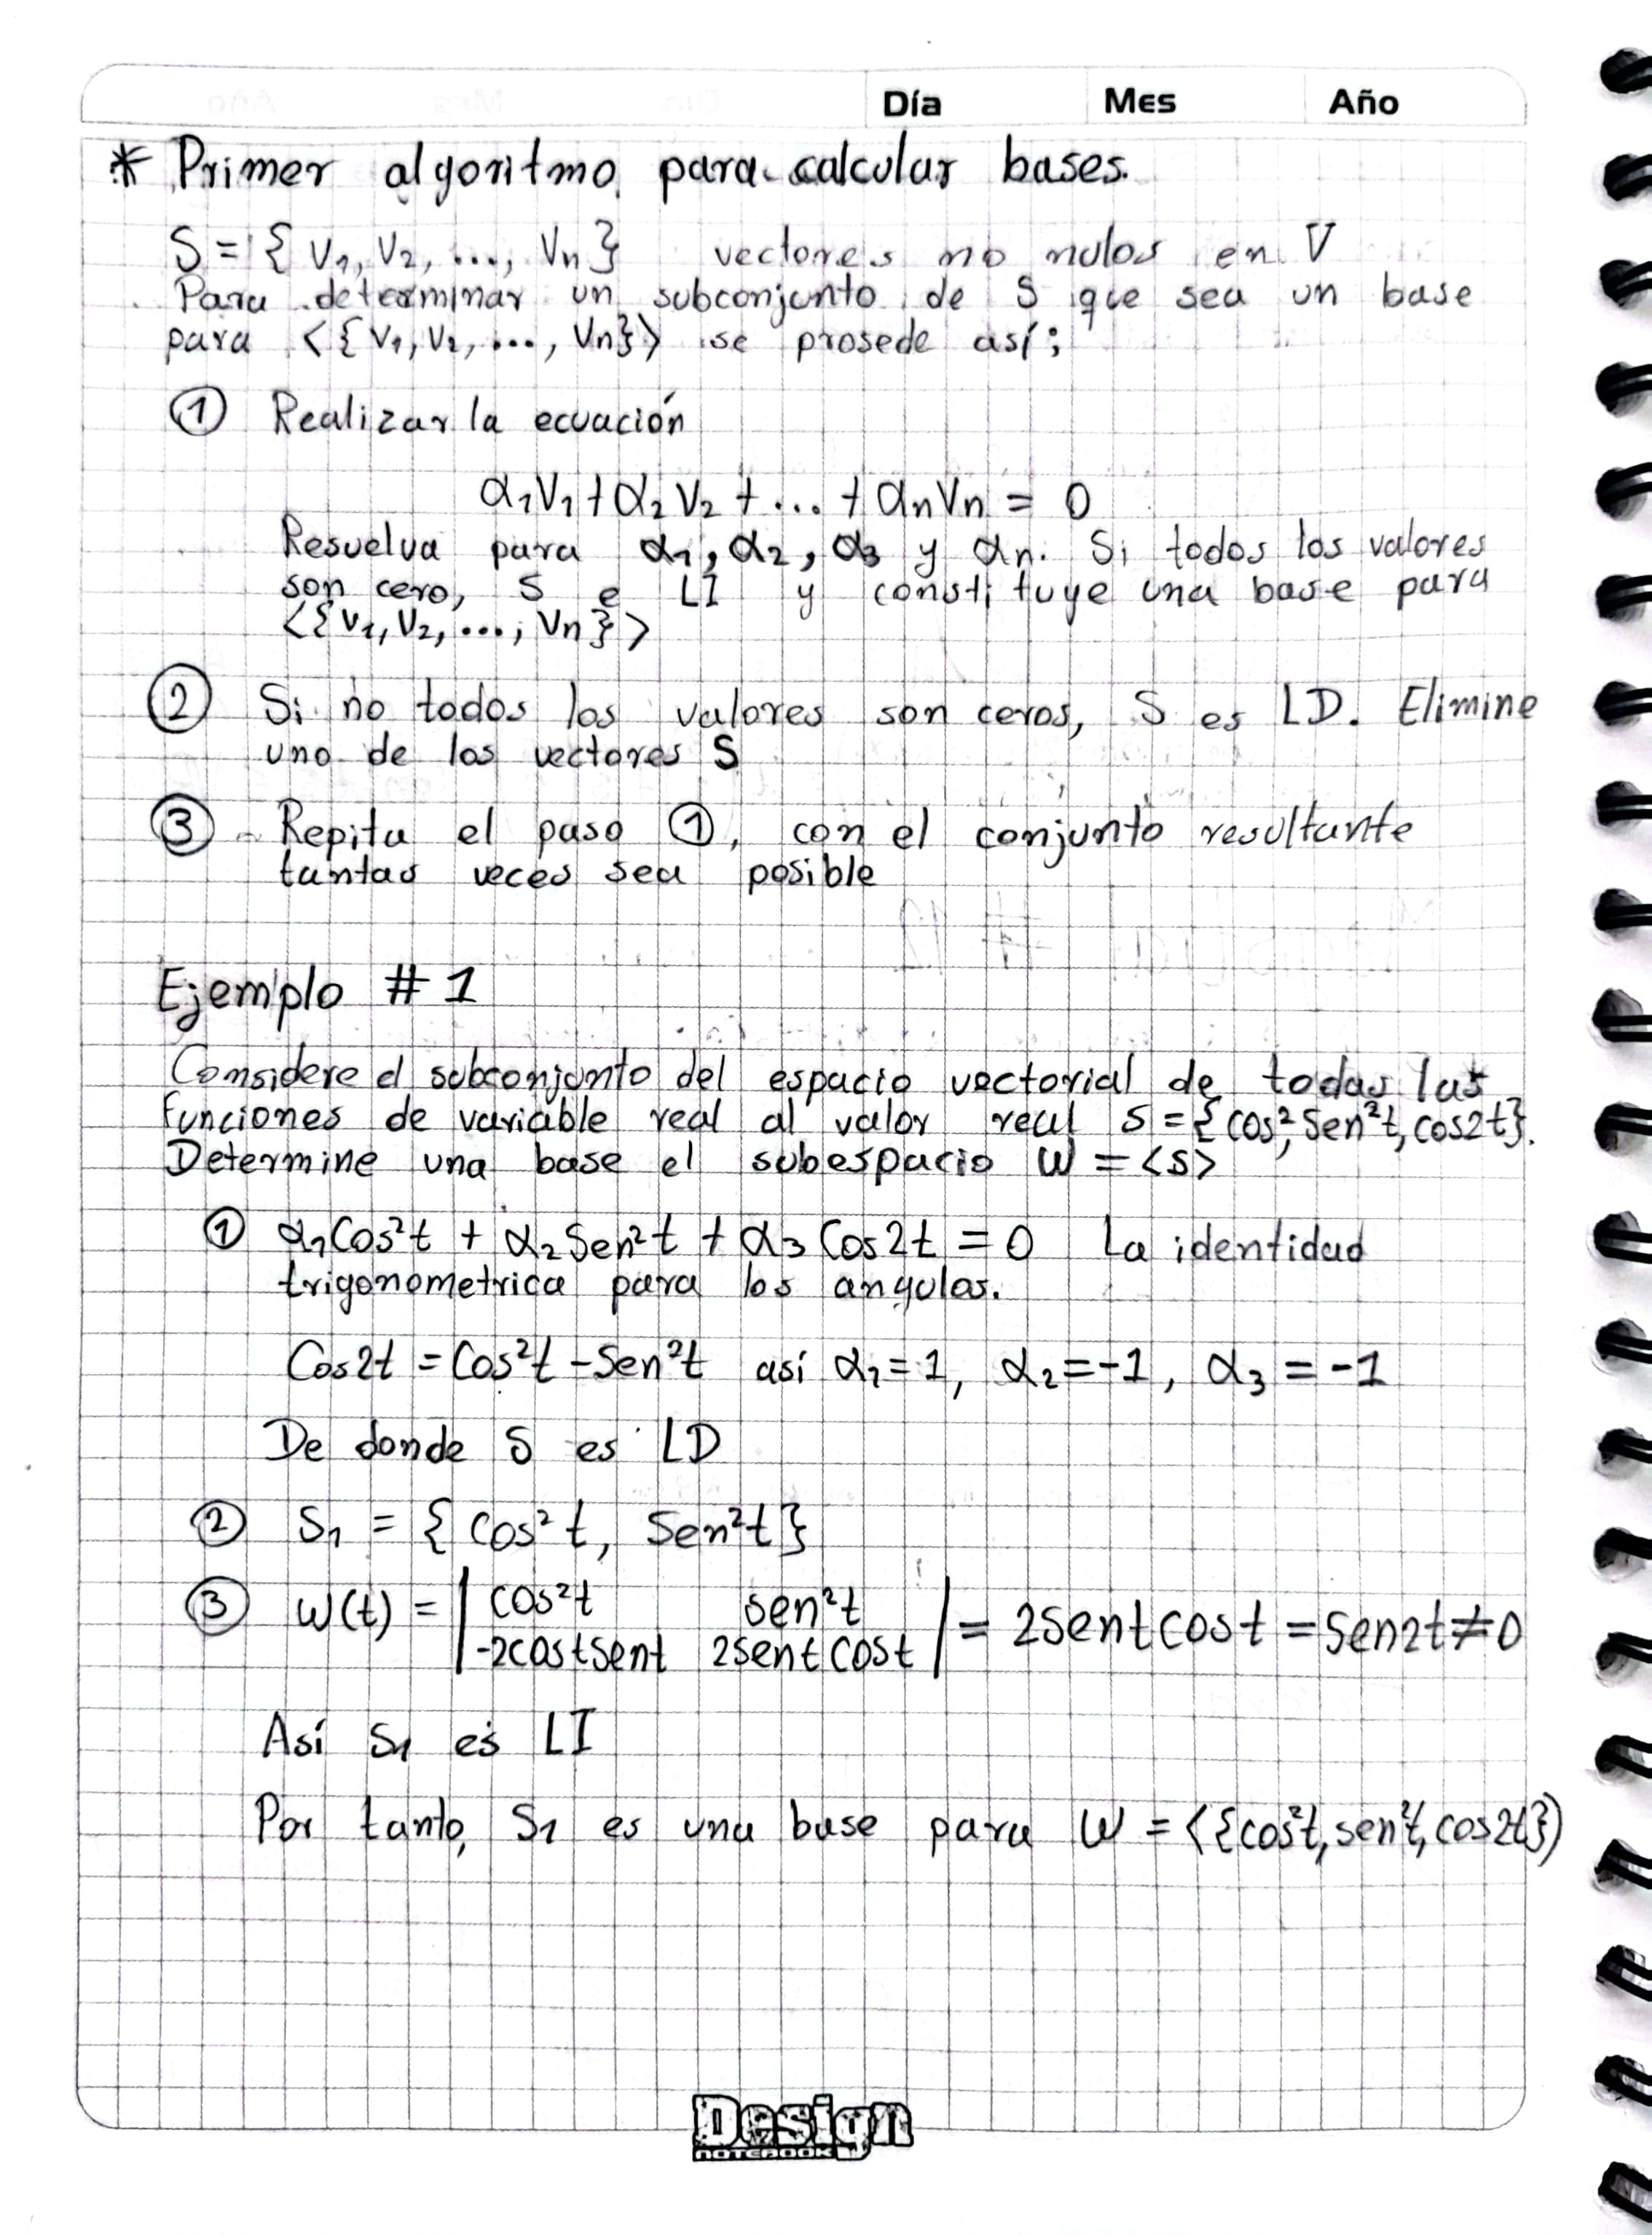 Día Mes Año
* Primer algoritmo para calcular bases.
S = { V₁, V₂, ..., Vn} vectores no nulos en V
Para determinar un subconjunto de S que sea un base
para <{V₁, V₂, ..., Vn}> se prosede así;
① Realizar la ecuación
α₁V₁ + α₂V₂ + ... + αnVn = 0
Resuelva para α₁, α₂, α₃ y αn. Si todos los valores
son cero, S e LI y constituye una base para
<{V₁, V₂, ..., Vn}>
② Si no todos los valores son ceros, S es LD. Elimine
uno de los vectores S
③ Repita el paso ①, con el conjunto resultante
tantas veces sea posible
Ejemplo # 1
Considere el subconjunto del espacio vectorial de todas las
funciones de variable real al valor real S = {cos², Sen²t, cos2t}.
Determine una base el subespacio W = <S>
① α₁Cos²t + α₂Sen²t + α₃Cos2t = 0 La identidad
trigonometrica para los angulos.
Cos2t = Cos²t - Sen²t así α₁ = 1, α₂ = -1, α₃ = -1
De donde S es LD
② S₁ = { Cos²t, Sen²t}
③ W(t) = | cos²t sen²t
-2costsent 2sentcost | = 2sentcost = sen2t ≠ 0
Así S₁ es LI
Por tanto, S₁ es una base para W = <{cos²t, sen²t, cos2t})
Design
NOTEBOOK